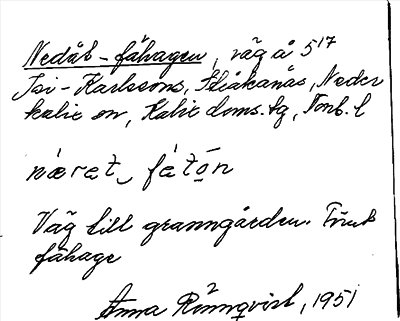 Nedåt-fåhagen, väg å 5¹⁷
Isi-Karlssons, Stråkanäs, Neder
kalix sn, Kalix doms.tg, Norrb. l
Väg till granngården. Finns
fåhage
Anna Rönnqvist, 1951